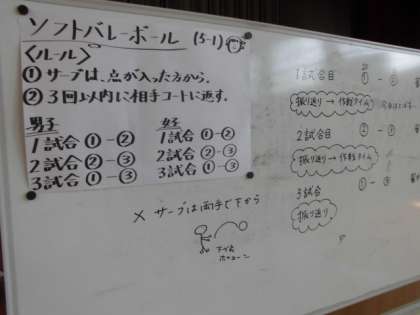 ソフトバレーボール (5-1)
〈ルール〉
①サーブは、点が入った方から。
②3回以内に相手コートに返す。
男子 女子
1試合 ①-② 1試合 ①-②
2試合 ②-③ 2試合 ②-③
3試合 ①-③ 3試合 ①-③
× サーブは両手で下から
1試合目 ① - ②
振り返り → 作戦タイム
2試合目 ② - ③
振り返り → 作戦タイム
3試合 ① - ③
振り返り